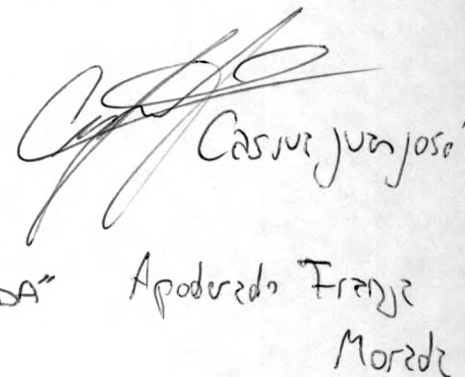 Juan José
DA" Apoderado Franja
Morada